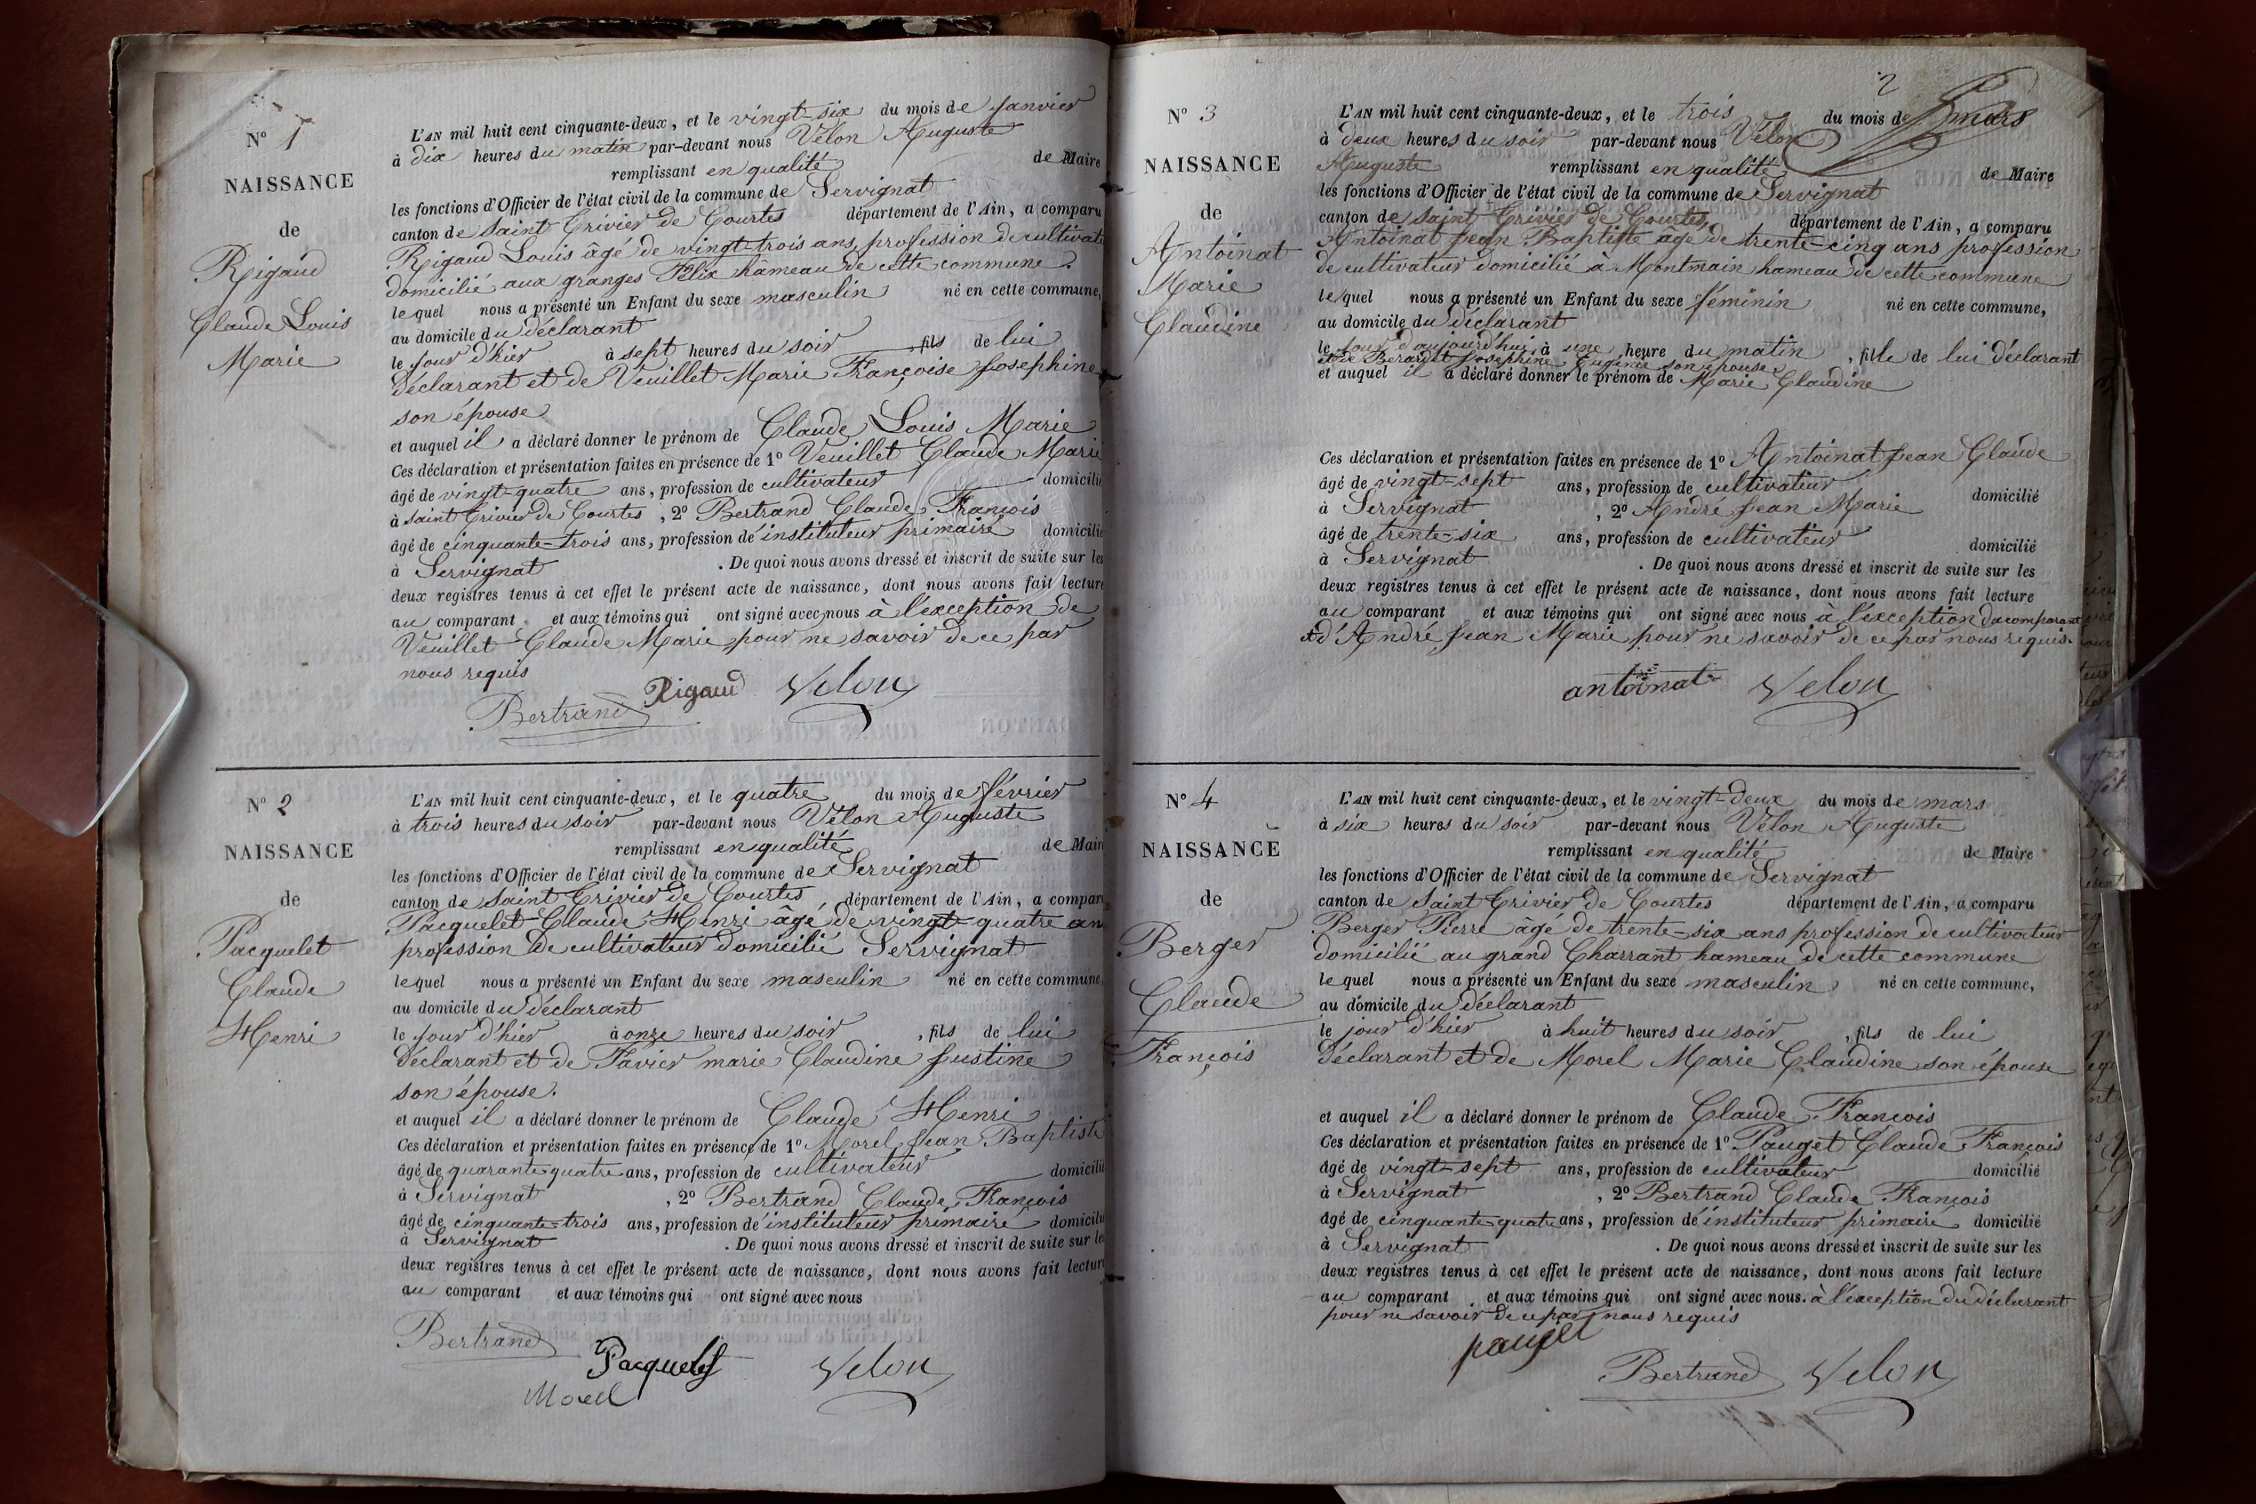 N° 1
NAISSANCE
de
Rigaud
Claude Louis
Marie
L'AN mil huit cent cinquante-deux, et le vingt-six du mois de janvier
à dix heures du matin par-devant nous Velon Auguste
remplissant en qualité de Maire
les fonctions d'Officier de l'état civil de la commune de Servignat
canton de Saint Trivier de Courtes département de l'Ain, a comparu
Rigaud Louis âgé de vingt-trois ans profession de cultivate
domicilié aux granges Félix hameau de cette commune.
lequel nous a présenté un Enfant du sexe masculin né en cette commune,
au domicile du déclarant
le jour d'hier à sept heures du soir, fils de lui
déclarant et de Veuillet Marie Françoise Josephine
son épouse
et auquel il a déclaré donner le prénom de Claude Louis Marie
Ces déclaration et présentation faites en présence de 1° Veuillet Claude Marie
âgé de vingt-quatre ans, profession de cultivateur domicilié
à Saint Trivier de Courtes, 2° Bertrand Claude François
âgé de cinquante-trois ans, profession d'instituteur primaire domicilié
à Servignat. De quoi nous avons dressé et inscrit de suite sur les
deux registres tenus à cet effet le présent acte de naissance, dont nous avons fait lecture
au comparant et aux témoins qui ont signé avec nous à l'exception de
Veuillet Claude Marie pour ne savoir de ce par
nous requis
Bertrand Rigaud Velon
N° 2
NAISSANCE
de
Pacquelet
Claude
Henri
L'AN mil huit cent cinquante-deux, et le quatre du mois de février
à trois heures du soir par-devant nous Velon Auguste
remplissant en qualité de Mair
les fonctions d'Officier de l'état civil de la commune de Servignat
canton de Saint Trivier de Courtes département de l'Ain, a compar
Pacquelet Claude Henri âgé de vingt-quatre an
profession de cultivateur domicilié Servignat
lequel nous a présenté un Enfant du sexe masculin né en cette commune,
au domicile du déclarant
le jour d'hier à onze heures du soir, fils de lui
déclarant et de Favier marie Claudine Justine
son épouse.
et auquel il a déclaré donner le prénom de Claude Henri
Ces déclaration et présentation faites en présence de 1° Morel Jean Baptiste
âgé de quarante quatre ans, profession de cultivateur domicilié
à Servignat, 2° Bertrand Claude François
âgé de cinquante-trois ans, profession d'instituteur primaire domicilié
à Servignat. De quoi nous avons dressé et inscrit de suite sur le
deux registres tenus à cet effet le présent acte de naissance, dont nous avons fait lecture
au comparant et aux témoins qui ont signé avec nous
Bertrand Pacquelet Velon
Morel
2
N° 3
NAISSANCE
de
Antoinat
Marie
Claudine
L'AN mil huit cent cinquante-deux, et le trois du mois de mars
à deux heures du soir par-devant nous Velon
Auguste remplissant en qualité de Maire
les fonctions d'Officier de l'état civil de la commune de Servignat
canton de Saint Trivier de Courtes, département de l'Ain, a comparu
Antoinat Jean Baptiste âgé de trente-cinq ans profession
de cultivateur domicilié à Montmain hameau de cette commune
lequel nous a présenté un Enfant du sexe féminin né en cette commune,
au domicile du déclarant
le jour d'aujourd'hui à une heure du matin, fille de lui déclarant
et de Berardet Josephine Eugénie son épouse
et auquel il a déclaré donner le prénom de Marie Claudine
Ces déclaration et présentation faites en présence de 1° Antoinat Jean Claude
âgé de vingt-sept ans, profession de cultivateur domicilié
à Servignat, 2° André Jean Marie
âgé de trente-six ans, profession de cultivateur domicilié
à Servignat. De quoi nous avons dressé et inscrit de suite sur les
deux registres tenus à cet effet le présent acte de naissance, dont nous avons fait lecture
au comparant et aux témoins qui ont signé avec nous à l'exception du comparant
et d'André Jean Marie pour ne savoir de ce par nous requis.
antoinat Velon
N° 4
NAISSANCE
de
Berger
Claude
François
L'AN mil huit cent cinquante-deux, et le vingt-deux du mois de mars
à six heures du soir par-devant nous Velon Auguste
remplissant en qualité de Maire
les fonctions d'Officier de l'état civil de la commune de Servignat
canton de Saint Trivier de Courtes département de l'Ain, a comparu
Berger Pierre âgé de trente-six ans profession de cultivateur
domicilié au grand Charrant hameau de cette commune
lequel nous a présenté un Enfant du sexe masculin né en cette commune,
au domicile du déclarant
le jour d'hier à huit heures du soir, fils de lui
déclarant et de Morel Marie Claudine son épouse
et auquel il a déclaré donner le prénom de Claude François
Ces déclaration et présentation faites en présence de 1° Pauget Claude François
âgé de vingt-sept ans, profession de cultivateur domicilié
à Servignat, 2° Bertrand Claude François
âgé de cinquante quatre ans, profession d'instituteur primaire domicilié
à Servignat. De quoi nous avons dressé et inscrit de suite sur les
deux registres tenus à cet effet le présent acte de naissance, dont nous avons fait lecture
au comparant et aux témoins qui ont signé avec nous. à l'exception du déclarant
pour ne savoir de ce par nous requis
pauget
Bertrand Velon